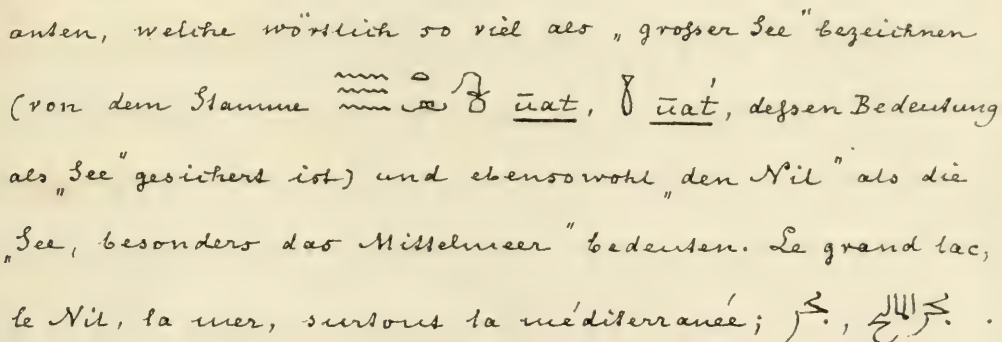 anten, welche wörtlich so viel als „großer See" bezeichnen
(von dem Stamme ūat, ūat́, deßen Bedeutung
als „See" gesichert ist) und ebensowohl „den Nil" als die
„See, besonders das Mittelmeer" bedeuten. Le grand lac,
le Nil, la mer, surtout la méditerranée; بحر, بحر المالح.